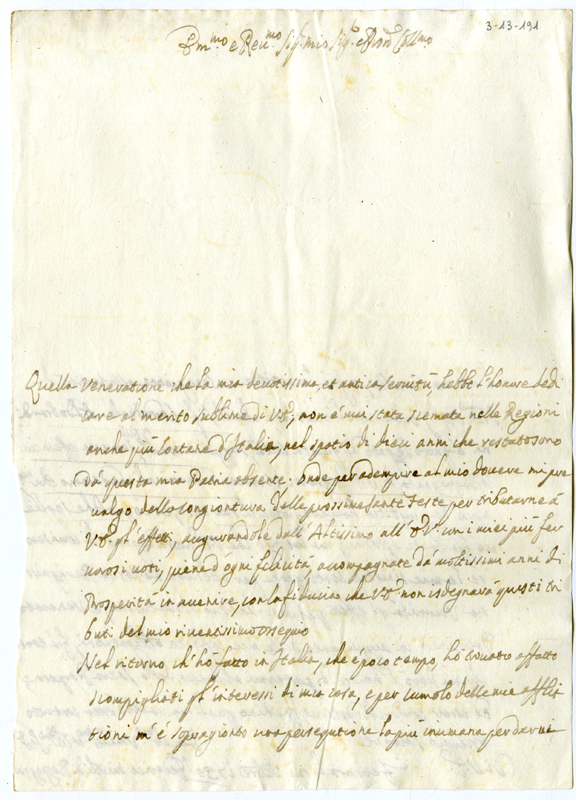 3-13-191
Em.mo e Reu.mo Sig.r mio Sig.r e Pron Coll.mo
Quella Veneratione che la mia deuotissima, et antica seruitù, hebbe l'honore dedi
care al merito sublime di V.E., non é mai stata scemata nelle Regioni
anche più lontane d'Italia, nel spatio di dieci anni che restato sono
dà questa mia Patria absente. Onde per adempire al mio douere mi pre
ualgo della congiontura delle prossime Sante Feste per tributarne à
V.E. gl'effetti, augurandole dall'Altissimo all'E.V. con i miei più fer
uorosi uoti, piene d'ogni felicità, accompagnate dà moltissimi anni di
Prosperità in auenire, con la fiducia che V.E. non isdegnarà questi tri
buti del mio riuerentissimo ossequio
Nel ritorno ch'hò fatto in Italia, che é poco tempo, hò trouato affatto
scompigliati gl'interessi di mia casa, e per cumolo delle mie afflit
tioni m'é sopragionto una persegutione la più inumana per darmi